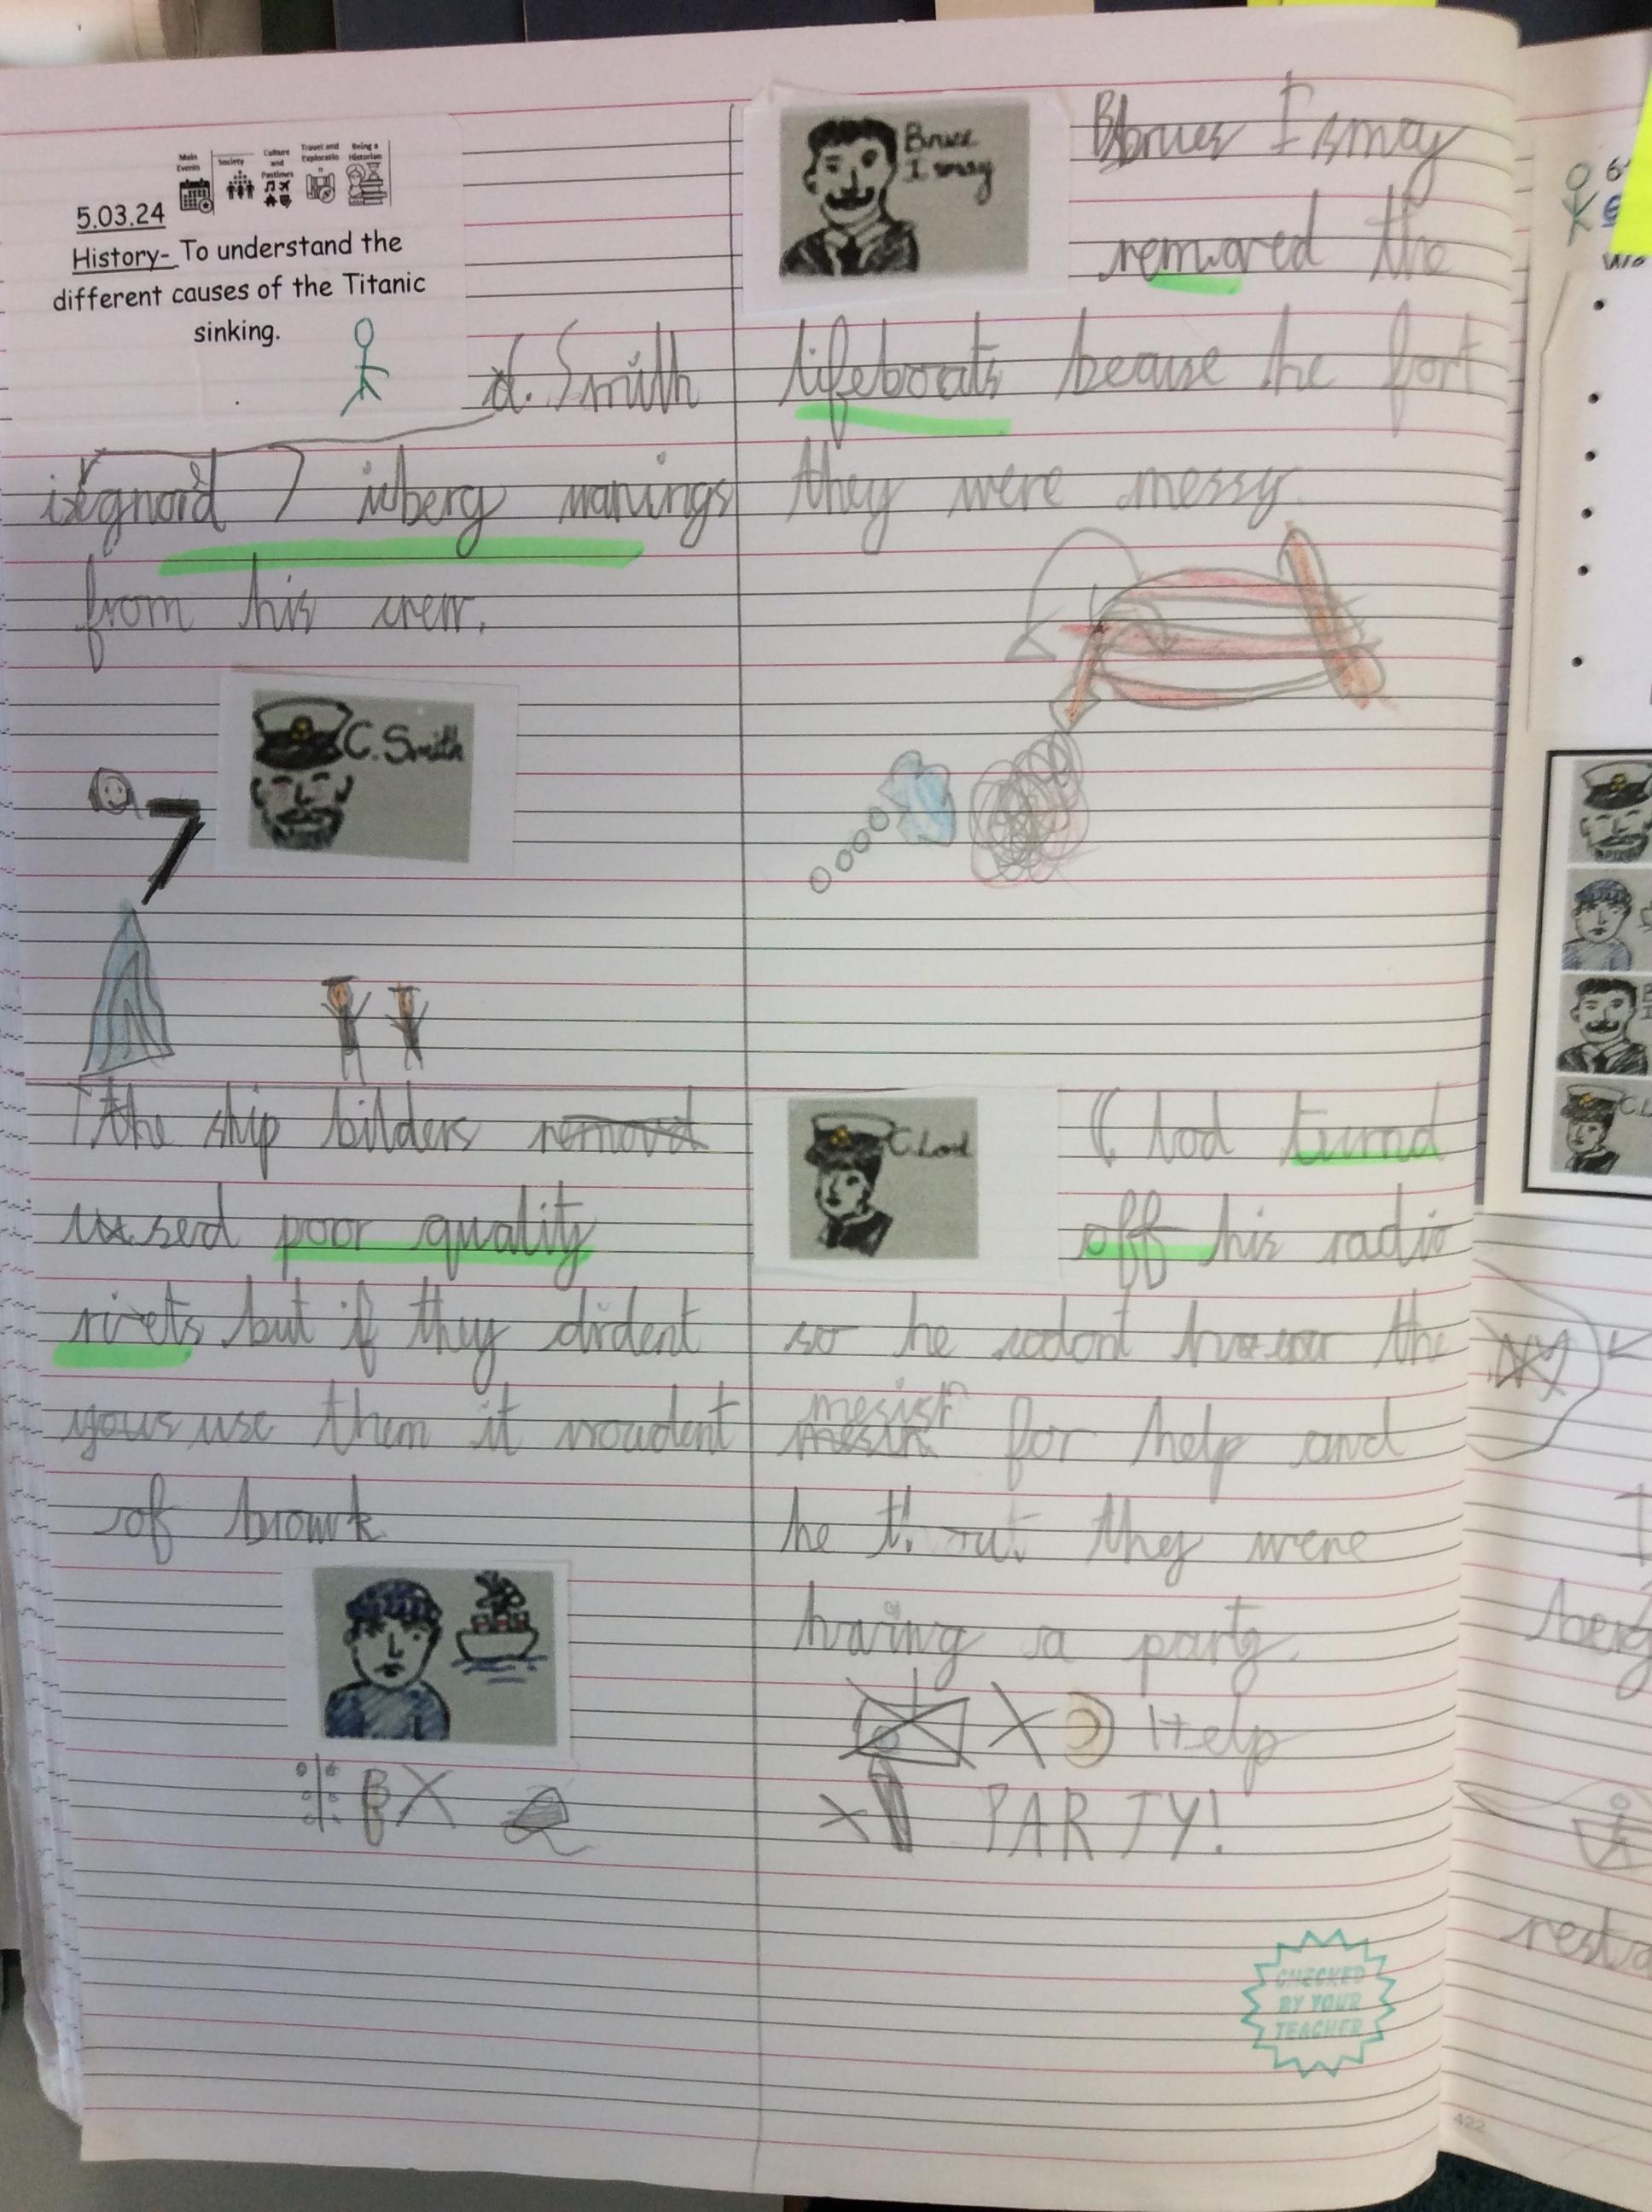 Main Events
Society
Culture and Pastimes
Travel and Exploration
Being a Historian
5.03.24
History- To understand the
different causes of the Titanic
sinking.
c. Smith
isegnord 7 iceberg warnings
from his crew.
C. Smith
The ship bilders removd
used poor quality
rivets but if they dident
yous use them it woudent
of browk
Bruce
Ismay
Brues Ismay
removed the
lifeboats because he fort
they were messy.
C. Lord
C lod turnd
off his radio
so he codont hear the
mesist for help and
he they were
having a party.
Help
PARTY!
CHECKED
BY YOUR
TEACHER
berg
422